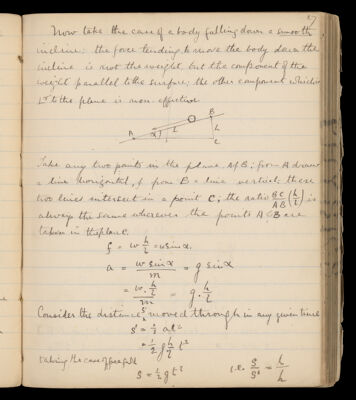 7
Now take the case of a body falling down a smooth
incline: the force tending to move the body down the
incline is not the weight, but the component of the
weight parallel to the surface; the other component which is
⊥r to the plane is non-effective
B
A α l h
C
Take any two points in the plane A & B; from A draw
a line horizontal, & from B a line vertical: these
two lines intersect in a point C; the ratio BC/AB (h/l) is
always the same wherever the points A & B are
taken in the plane.
f = w h/l = w sin α
a = w sin α / m = g sin α
= w · h/l / m = g · h/l
Consider the distance S' moved through in any given time
S' = ½ at²
= ½ g h/l t²
taking the case of free fall
S = ½ g t² i.e. S/S' = l/h